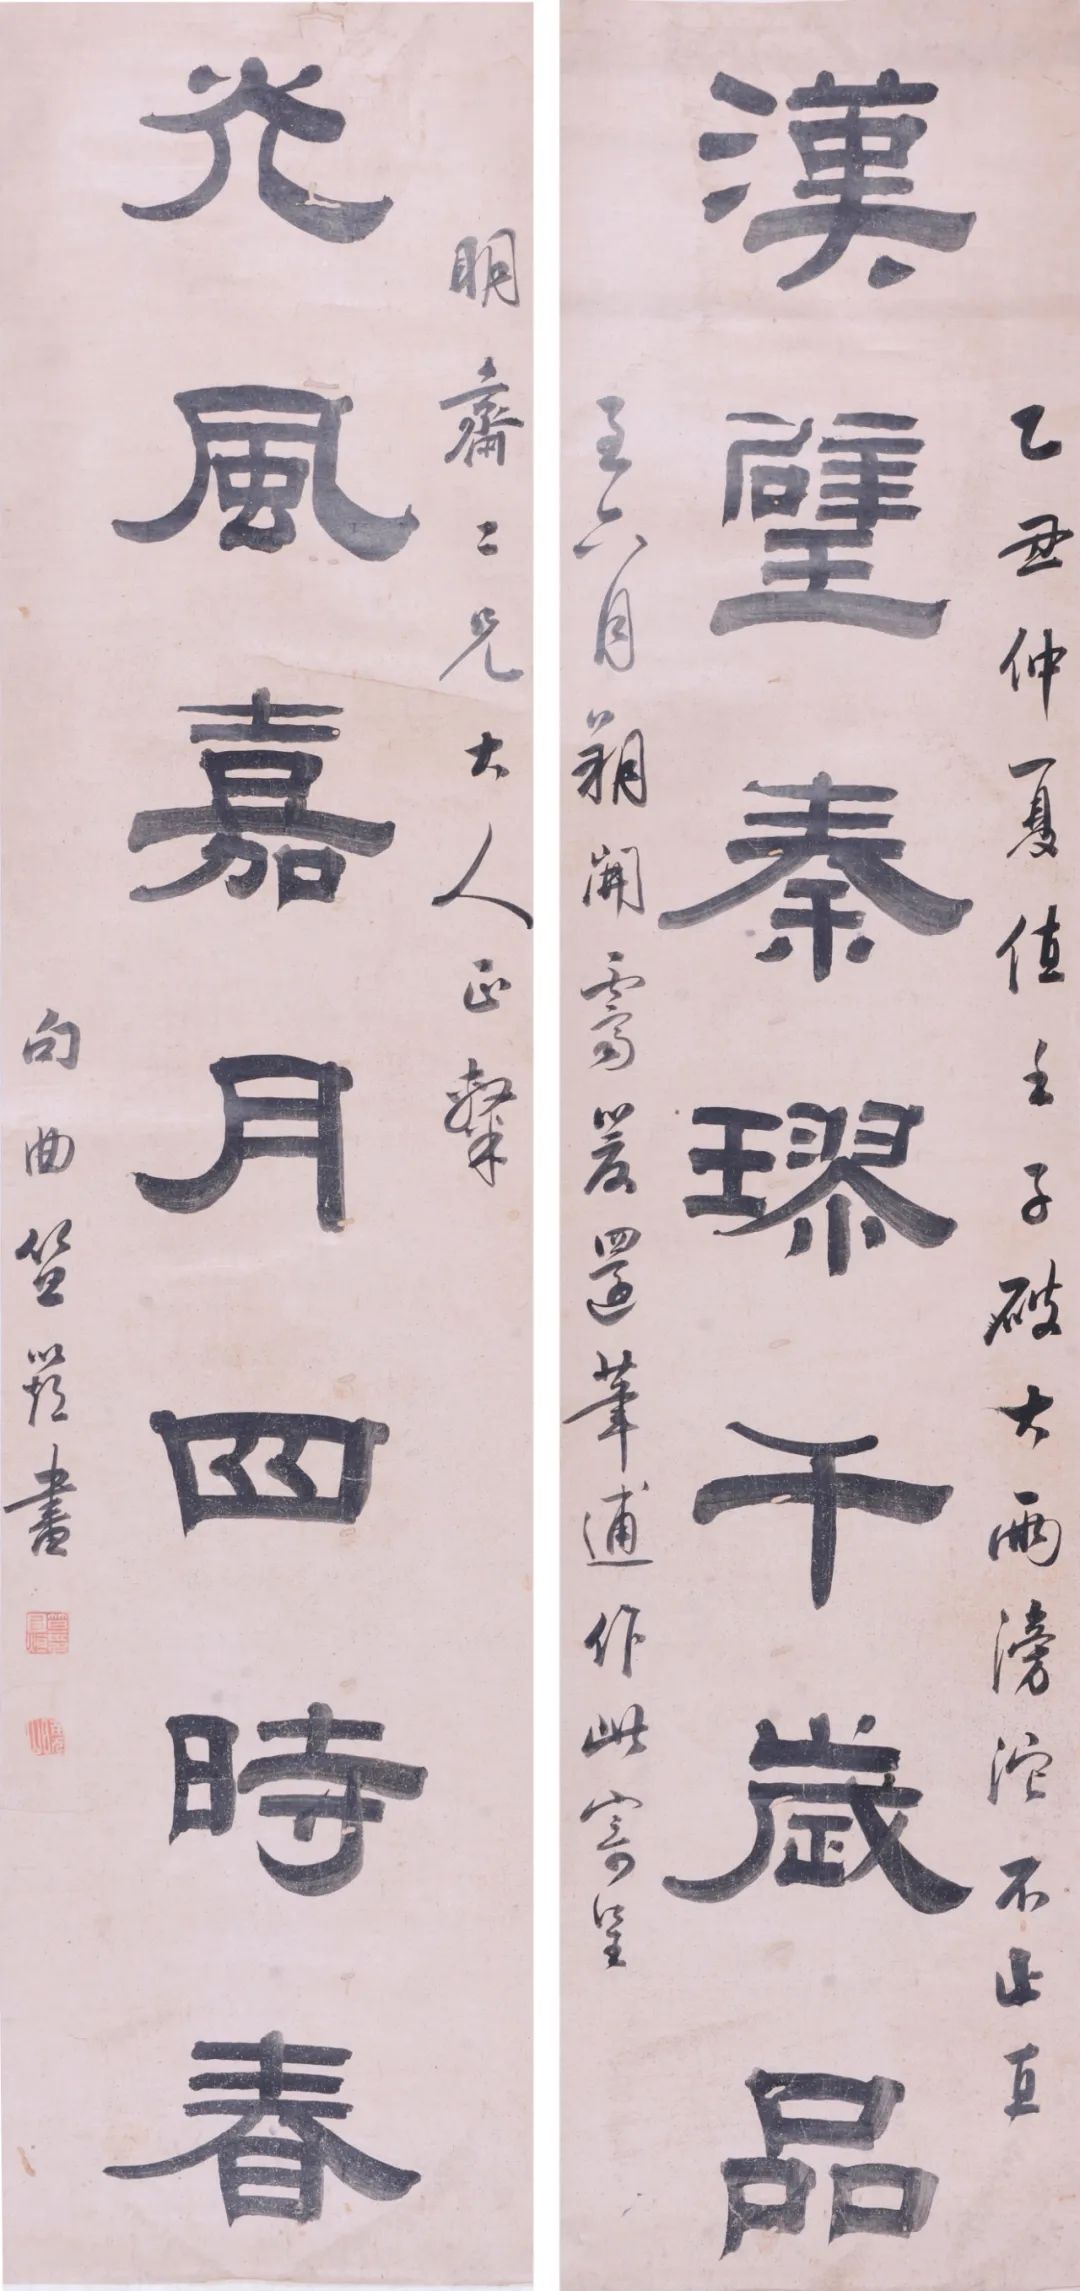 乙丑仲夏值壬子破大雨滂沱不止直
漢璧秦璆千歲品
至六月朔開霽爰還筆逋作此寄呈
明齋二兄大人正
光風嘉月四時春
句曲笪書